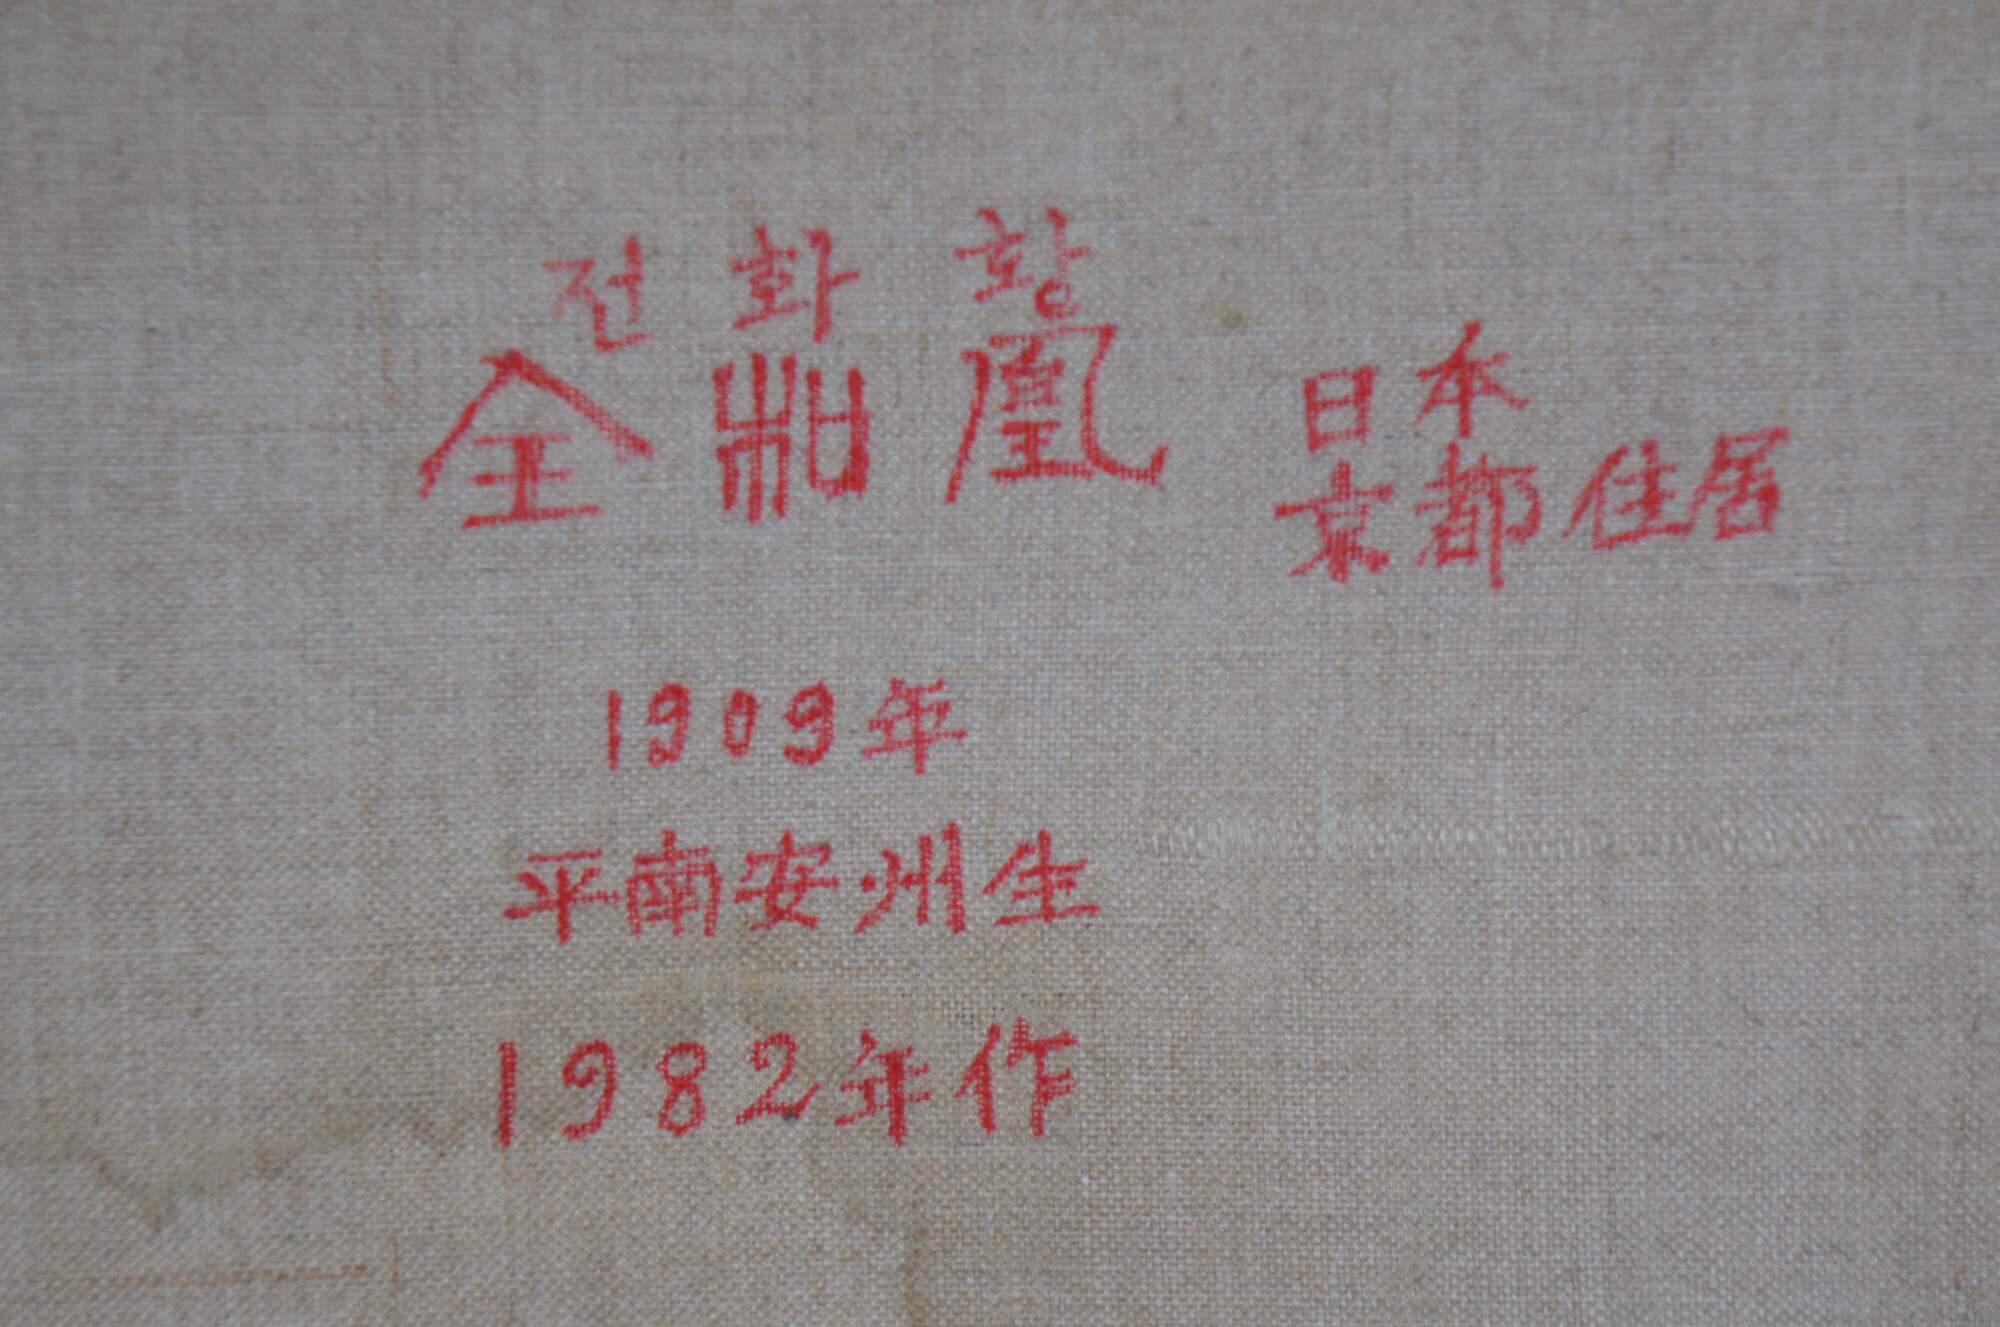 전 화 황
全 和 凰
日本
京都住居
1909年
平南安州生
1982年作